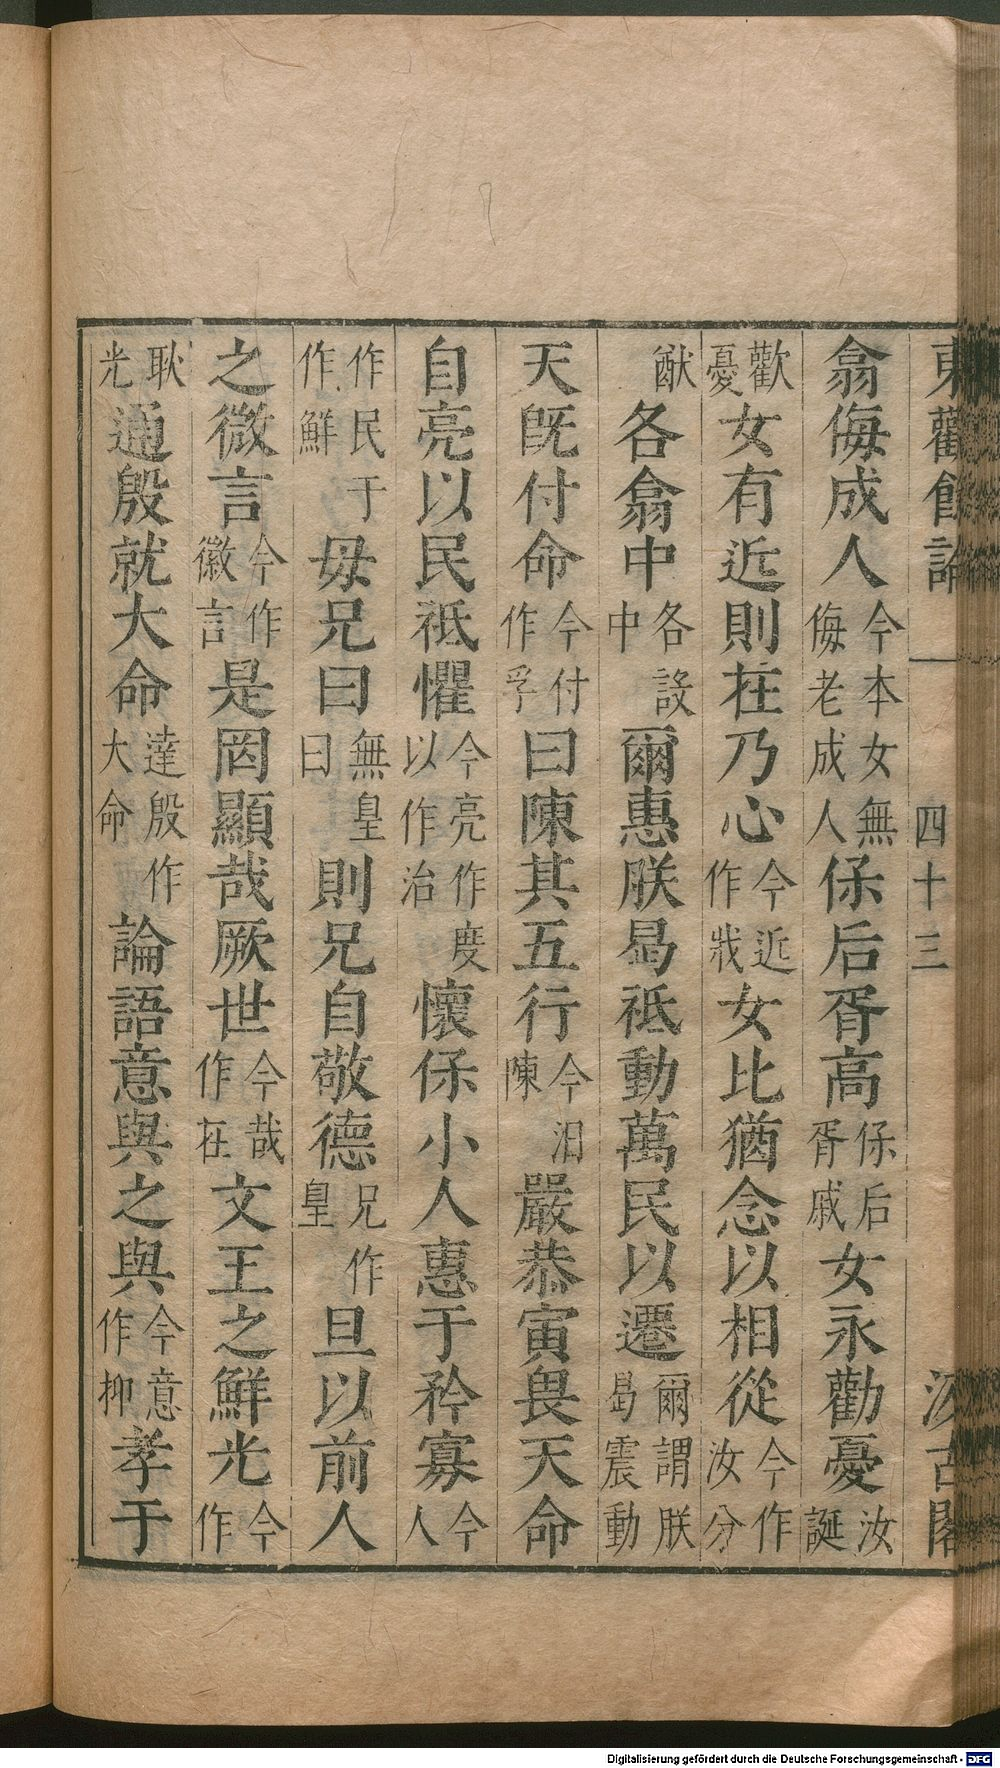 東觀餘論 四十三 汲古閣
翕侮成人今本女無侮老成人保后胥高保后胥戚女永勸憂汝誕
歡憂女有近則在乃心今近作戕女比猶念以相從今作汝分
猷各翕中各設中爾惠朕曷祗動萬民以遷爾謂朕曷震動
天旣付命今付作孚曰陳其五行今汩陳嚴恭寅畏天命
自亮以民祗懼今亮作度以作治懷保小人惠于矜寡今人
作民于作鮮毋兄曰無皇曰則兄自敬德兄作皇旦以前人
之微言今作徽言是罔顯哉厥世今哉作在文王之鮮光今作
耿光通殷就大命達殷作大命論語意與之與今意作抑孝于
Digitalisierung gefördert durch die Deutsche Forschungsgemeinschaft - DFG